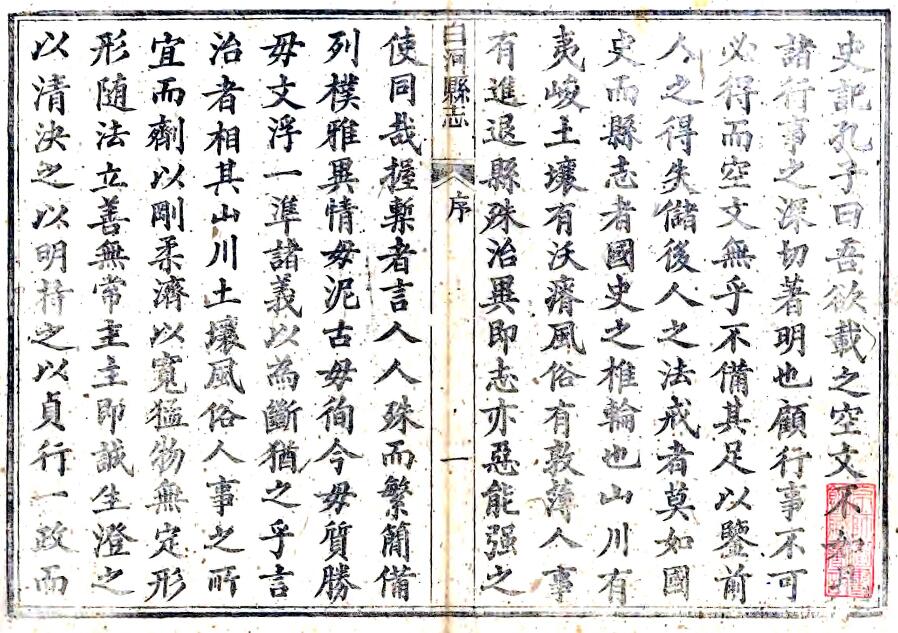 史記孔子曰吾欲載之空文不如見
諸行事之深切著明也顧行事不可
必得而空文無乎不備其足以鑒前
人之得失儲後人之法戒者莫如國
史而縣志者國史之椎輪也山川有
夷峻土壤有沃瘠風俗有敦薄人事
有進退縣殊治異即志亦惡能强之
白河縣志 序 一
使同哉握槧者言人人殊而繁簡備
列樸雅異情毋泥古毋徇今毋質勝
毋文浮一準諸義以為斷猶之乎言
治者相其山川土壤風俗人事之所
宜而劑以剛柔濟以寬猛物無定形
形随法立善無常主主即誠生澄之
以清決之以明持之以貞行一政而